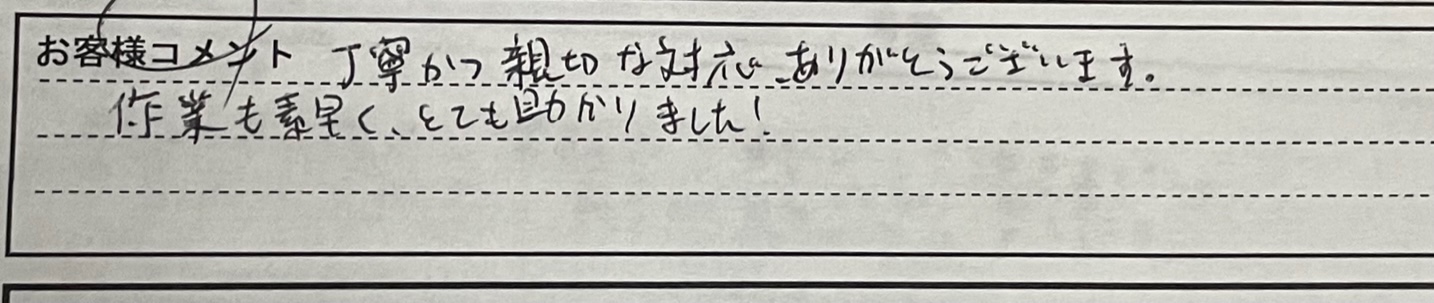 お客様コメント 丁寧かつ親切な対応、ありがとうございます。
作業も素早く、とても助かりました!